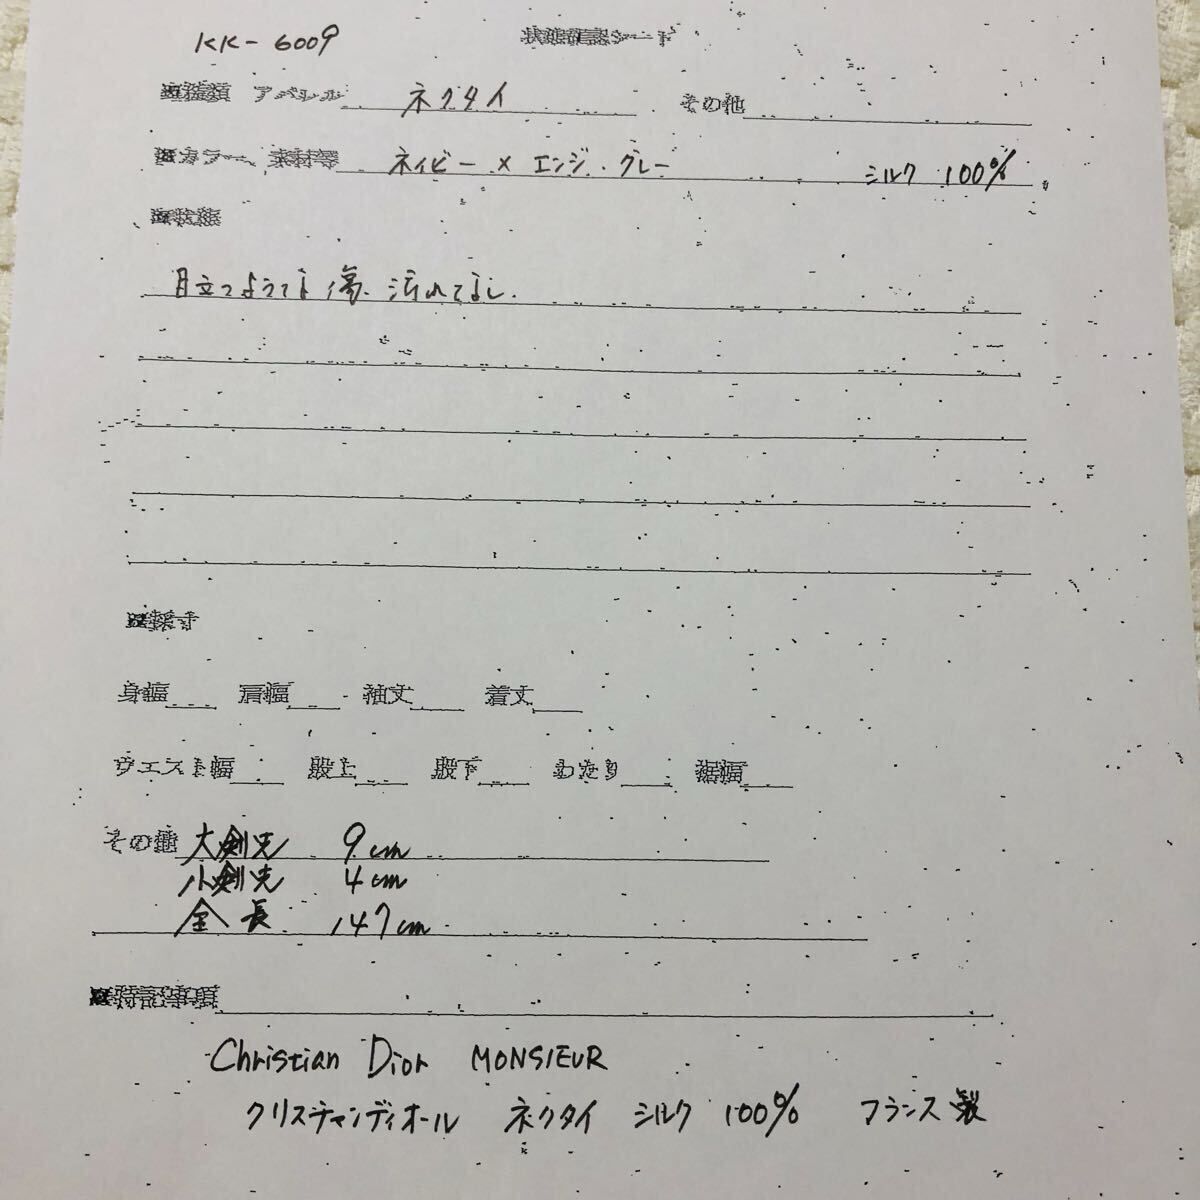 KK-6009 状態確認シート
■種類 アパレル ネクタイ その他
■カラー、素材等 ネイビー × エンジ・グレー シルク 100%
■状態
目立つような傷、汚れてなし.
■採寸
身幅 肩幅 袖丈 着丈
ウエスト幅 股上 股下 わたり 裾幅
その他 大剣先 9cm
小剣先 4cm
全長 147cm
■特記事項
Christian Dior MONSIEUR
クリスチャンディオール ネクタイ シルク 100% フランス製